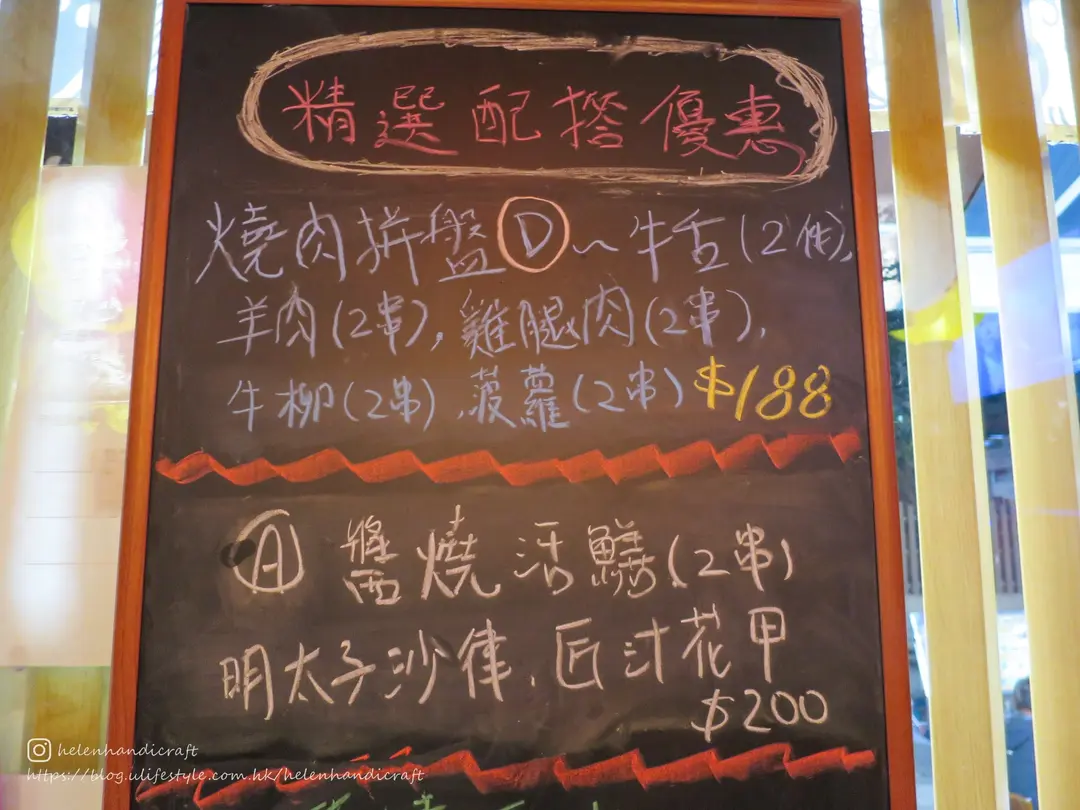 精選配搭優惠
燒肉拼盤Ⓓ～牛舌(2件),
羊肉(2串), 雞腿肉(2串),
牛柳(2串), 菠蘿(2串) $188
Ⓐ 醬燒活鱔(2串)
明太子沙律, 匠汁花甲
$200
helenhandicraft
https://blog.ulifestyle.com.hk/helenhandicraft